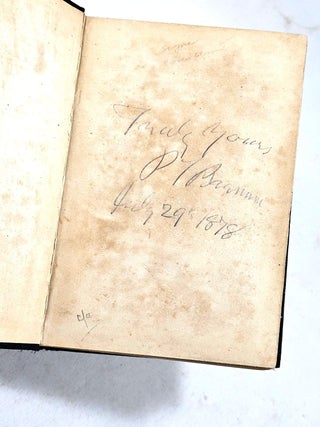 Truly Yours
P T Barnum
July 29th 1878